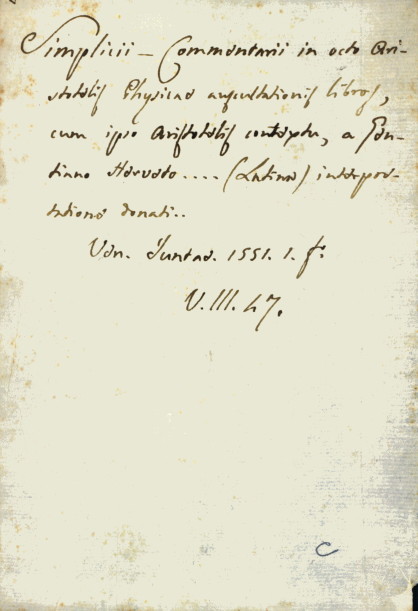 Simplicii – Commentarii in octo Ari-
stotelis Physicae auscultationis libros,
cum ipso Aristotelis contextu, a Gen-
tiano Herveto .... (Latina) interpre-
tatione donati..
Ven. Juntae. 1551. 1. f.
V. III. 47.
C